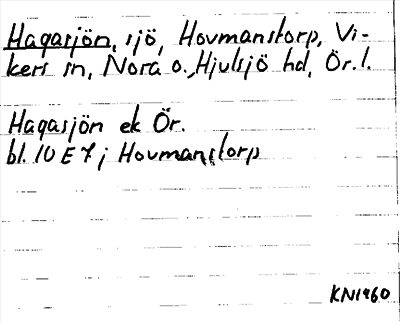 Hagasjön, sjö, Hovmanstorp, Vi-
kers sn, Nora o. Hjulsjö hd, Ör. l.
Hagasjön ek Ör.
bl. 10 E 7; Hovmanstorp
KN1960